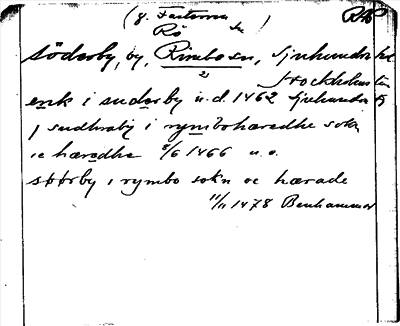 RäB
Rö
söderby, by, Rimbo sn, Sjuhundra hd
Stockholms län
enk i suderby u.d. 1462 Sjuhundra
j sudhraby i rymbohæredhe sokn
oc hæredhe 8/6 1466 u.o.
sørby i rymbo sokn oc hærade
11/11 1478 Benhammar